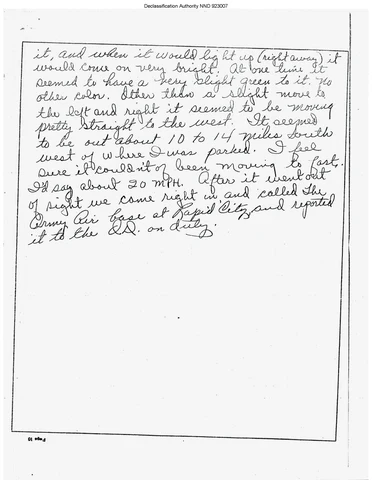 Declassification Authority NND 923007
it, and when it would light up (right away) it
would come on very bright. At one time it
seemed to have a very slight green to it. No
other color. Other then a slight move to
the left and right it seemed to be moving
pretty straight to the west. It seemed
to be out about 10 to 14 miles South
west of where I was parked. I feel
sure it couldn't of been moving to fast.
I'd say about 20 MPH. After it went out
of sight we come right in and called the
Army Air base at Rapid City and reported
it to the O.D. on duty.
Page 10